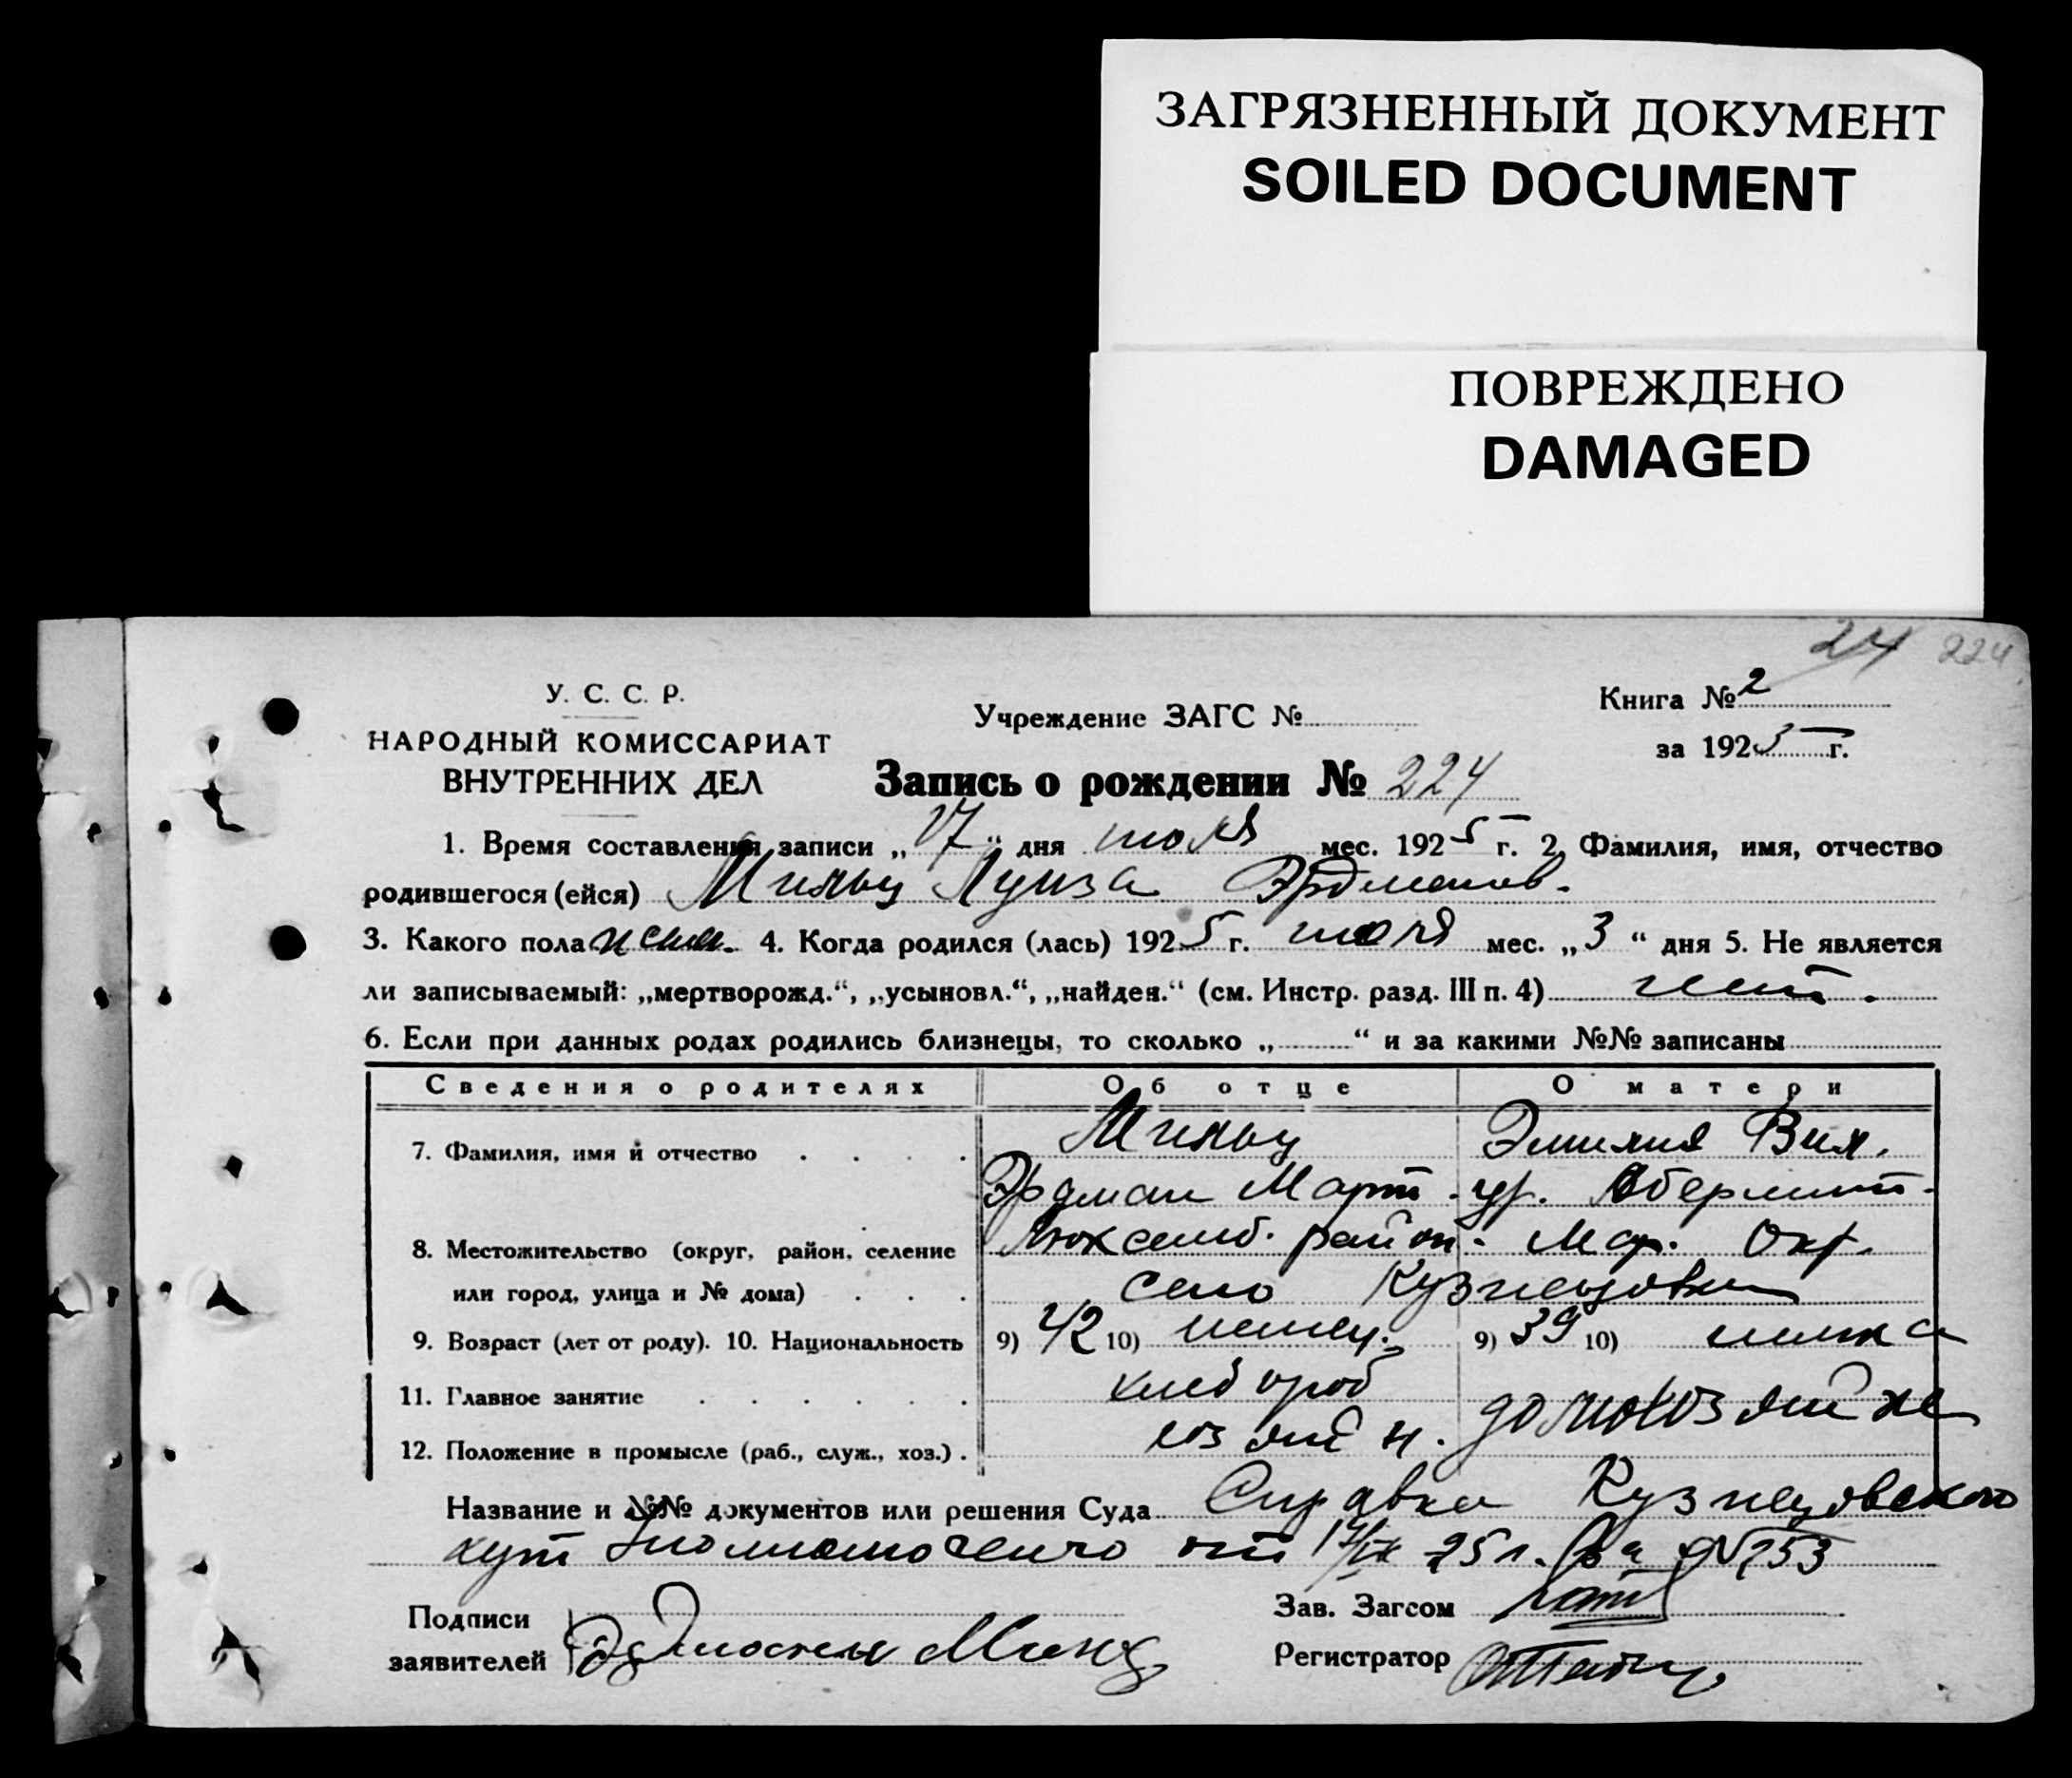 ЗАГРЯЗНЕННЫЙ ДОКУМЕНТ
SOILED DOCUMENT
ПОВРЕЖДЕНО
DAMAGED
24 224
У. С. С. Р.
НАРОДНЫЙ КОМИССАРИАТ
ВНУТРЕННИХ ДЕЛ
Учреждение ЗАГС №
Книга № 2
за 1925 г.
Запись о рождении № 224
1. Время составления записи „17“ дня июля мес. 1925 г. 2. Фамилия, имя, отчество
родившегося (ейся) Мильц Луиза Эрдманов.
3. Какого пола жен. 4. Когда родился (лась) 1925 г. июля мес. „3“ дня 5. Не является
ли записываемый: „мертворожд.“, „усыновл.“, „найден.“ (см. Инстр. разд. III п. 4) нет.
6. Если при данных родах родились близнецы, то сколько „ “ и за какими №№ записаны
Сведения о родителях Об отце О матери
7. Фамилия, имя и отчество Мильц Эмилия Вил.
Эрдман Март. ур.
8. Местожительство (округ, район, селение Люксемб. район. Мар. Окр.
или город, улица и № дома) село Кузнецовка
9. Возраст (лет от роду). 10. Национальность 9) 42 10) немец. 9) 39 10) немка
11. Главное занятие хлебороб домохозяйка
12. Положение в промысле (раб., служ., хоз.) хозяин.
Название и №№ документов или решения Суда Справка Кузнецовского
от 25 г. за № 153
Подписи
заявителей
Зав. Загсом
Регистратор